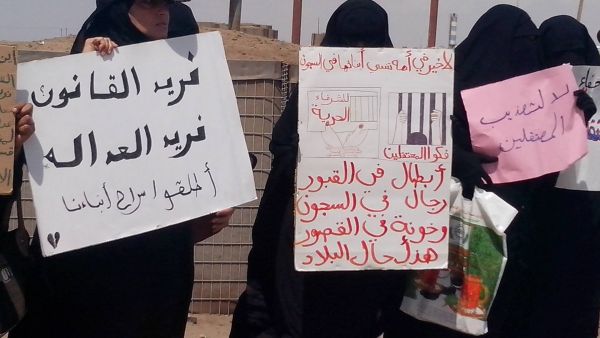 نريد القانون
نريد العداله
أطلقوا سراح أبناءنا
لا خير في أمة تنسى أبنائها في السجون
للشرفاء
الحرية
فكوا المعتقلين
أبطال في القبور
رجال في السجون
وخونة في القصور
هذا حال البلاد
لا لتعذيب
المعتقلين